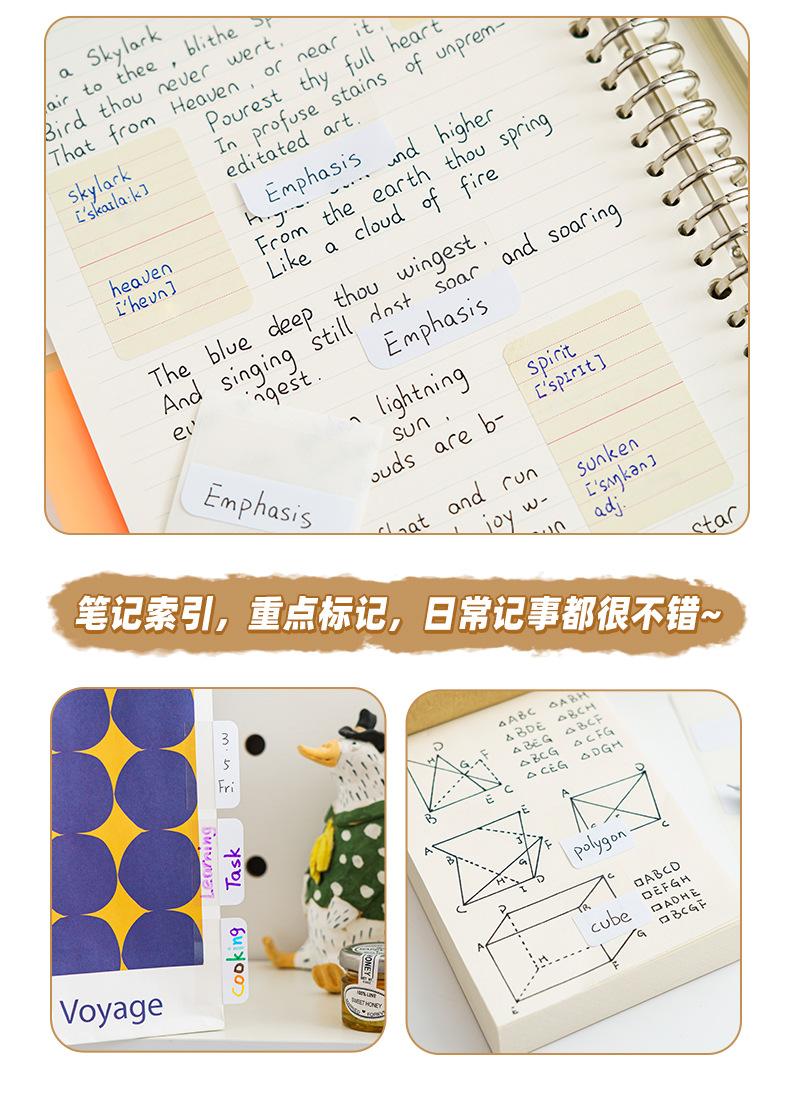 a Skylark
air to thee, blithe Sp
Bird thou never wert.
That from Heaven, or near it.
Pourest thy full heart
In profuse stains of unprem-
editated art.
skylark
['skaɪla:k]
heaven
['hevn]
Emphasis
and higher
From the earth thou spring
Like a cloud of fire
The blue deep thou wingest.
And singing still dost soar and soaring
ingest.
Emphasis
lightning
sun.
ouds are b-
spirit
['spɪrɪt]
sunken
['sʌŋkən]
adj.
Emphasis
float and run
joy w-
star
笔记索引，重点标记，日常记事都很不错~
3.
5
Fri
Learning
Task
cooking
Voyage
HONEY
SWEET HONEY
△ABC △ABH
△BDE △BCH
△BEG △BCF
△BCG △CFG
△CEG △DGH
D
H
G
F
B
E
C
A
D
C
A
B
E
J
F
G
H
I
D
C
polygon
D
C
R
A
cube
G
H
F
E
□ABCD
□EFGH
□ADHE
□BCGF